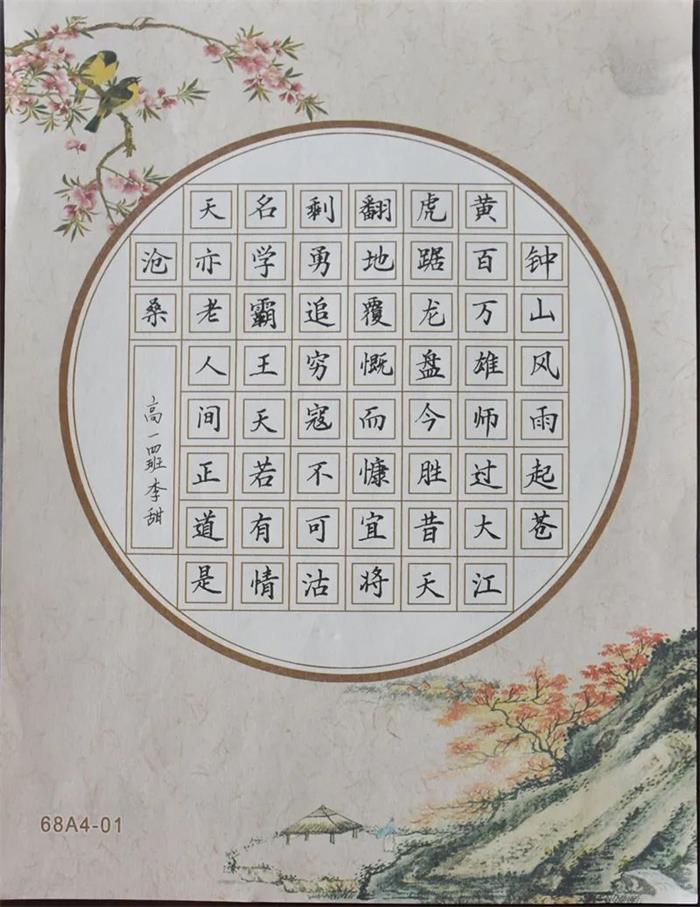 钟山风雨起苍
黄百万雄师过大江
虎踞龙盘今胜昔天
翻地覆慨而慷宜将
剩勇追穷寇不可沽
名学霸王天若有情
天亦老人间正道是
沧桑
高一四班李甜
68A4-01